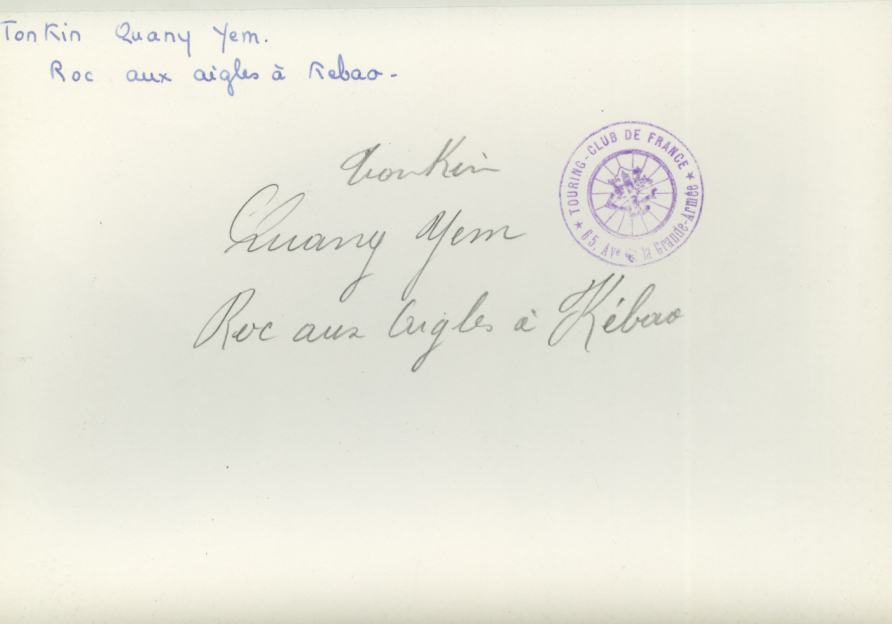 Tonkin Quany Yem.
Roc aux aigles à Kebao -
Tonkin
Quany Yem
Roc aux Aigles à Kébao
★ TOURING-CLUB DE FRANCE ★
65, Ave de la Grande-Armée